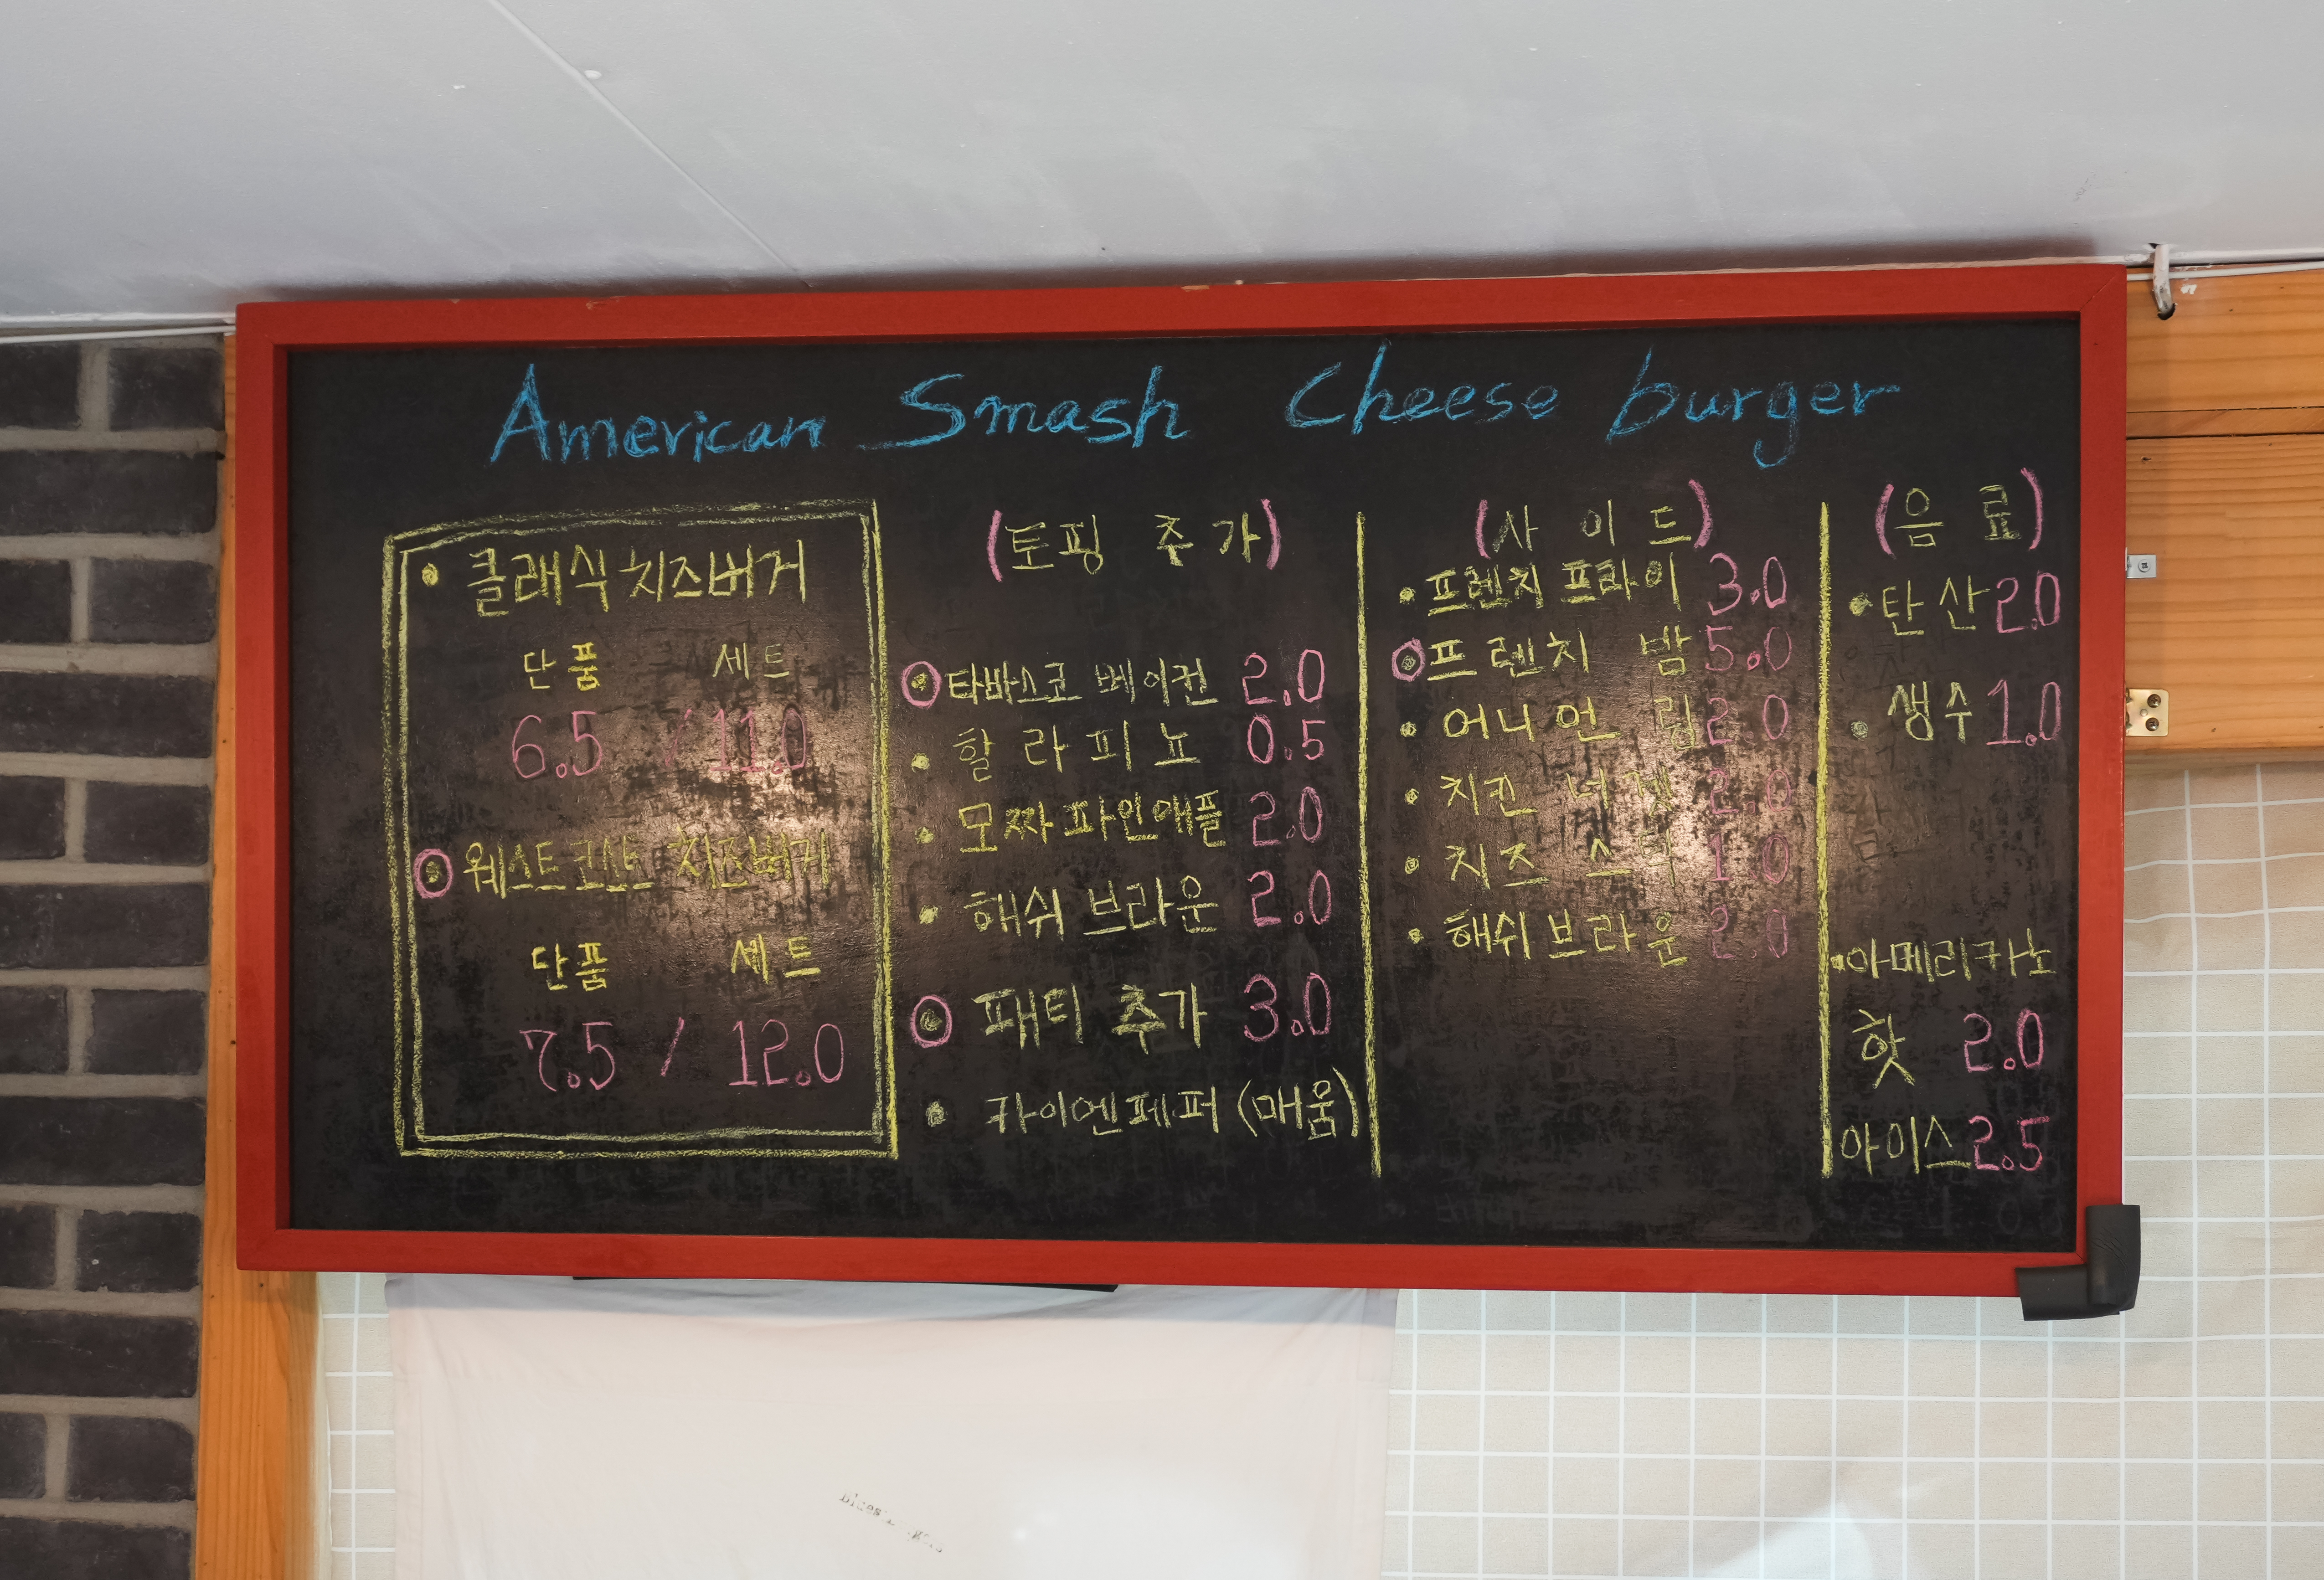 American Smash Cheese burger
클래식 치즈버거
단품 세트
6.5 / 11.0
웨스트코스트 치즈버거
단품 세트
7.5 / 12.0
(토핑 추가)
타바스코 베이컨 2.0
할라피뇨 0.5
모짜파인애플 2.0
해쉬브라운 2.0
패티 추가 3.0
카이엔페퍼 (매움)
(사이드)
프렌치 프라이 3.0
프렌치 밤 5.0
어니언 링 2.0
치킨 너겟 2.0
치즈 스틱 1.0
해쉬브라운 2.0
(음료)
탄산 2.0
생수 1.0
아메리카노
핫 2.0
아이스 2.5